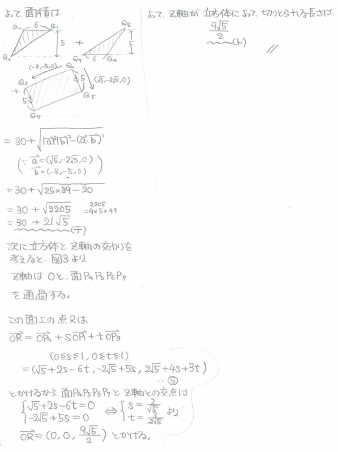 よって 面積は
Q₁ 6 5
+
Q₈ 5
(-8,-5,0)
(√5,-2√5,0)
+ 5 Q₅
Q₇
= 30 + √(|a|²|b|² - (a・b)²)
(∵ a = (√5, -2√5, 0)
b = (-8, -5, 0))
= 30 + √(25×89 - 20)
= 30 + √2205
2205
= 9×5×49
= 30 + 21√5
(テ)
次に立方体と Z軸の交わりを
考えると、図3より
Z軸は Oと、面P₄P₅P₈P₇
を通過する。
この面上の点Rは
OR = OP₄ + sOP₁ + tOP₃
(0≦s≦1, 0≦t≦1)
= (√5+2s-6t, -2√5+5s, 2√5+4s+3t)
…⑤
とかけるから、面P₄P₅P₈P₇と Z軸との交点は
{√5+2s-6t=0
-2√5+5s=0
⇔ {s = 2/√5
t = 3/2√5 より
OR = (0, 0, 9√5/2) とかける。
よって、Z軸が 立方体によって、切りとられる長さは、
9√5/2
(ト)